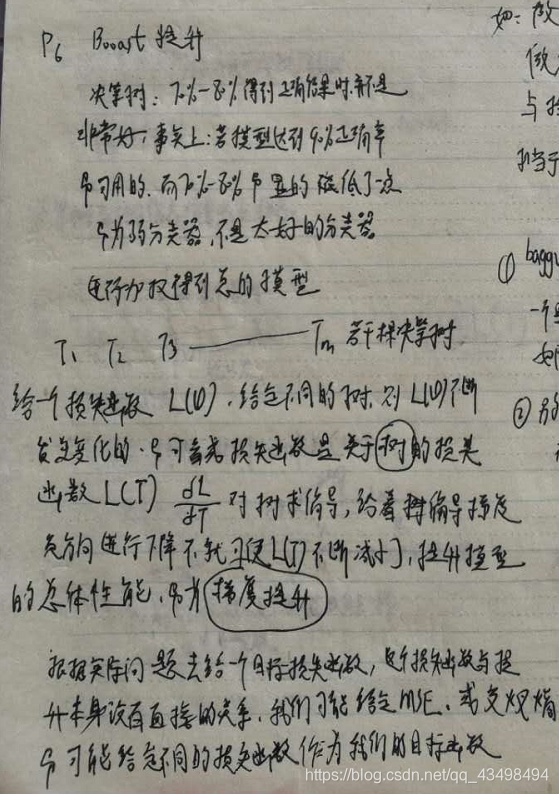 P6 Booast 提升
决策树：70%-80%得到正确结果时并不是
非常好，事实上：若模型达到90%正确率
即可用的，而70%-80%即显的低了一点
即为弱分类器，不是太好的分类器
进行加权得到总的模型
T1 T2 T3 —— Tm 若干棵决策树
给一个损失函数 L(φ)，给定不同的树，则 L(φ)不断
发生变化的，即可看成损失函数是关于树的损失
函数L(T) dL/dT 对树求偏导，沿着树偏导梯度
负方向进行下降不就可使L(T)不断减小，提升模型
的总体性能，即为梯度提升
根据实际问题去给一个目标损失函数，这个损失函数与提
升本身没有直接的关系，我们可能给定MSE，或交叉熵
即可能给定不同的损失函数作为我们的目标函数
如：做
做
与
相当于
① bagg
一个
② 另
https://blog.csdn.net/qq_43498494